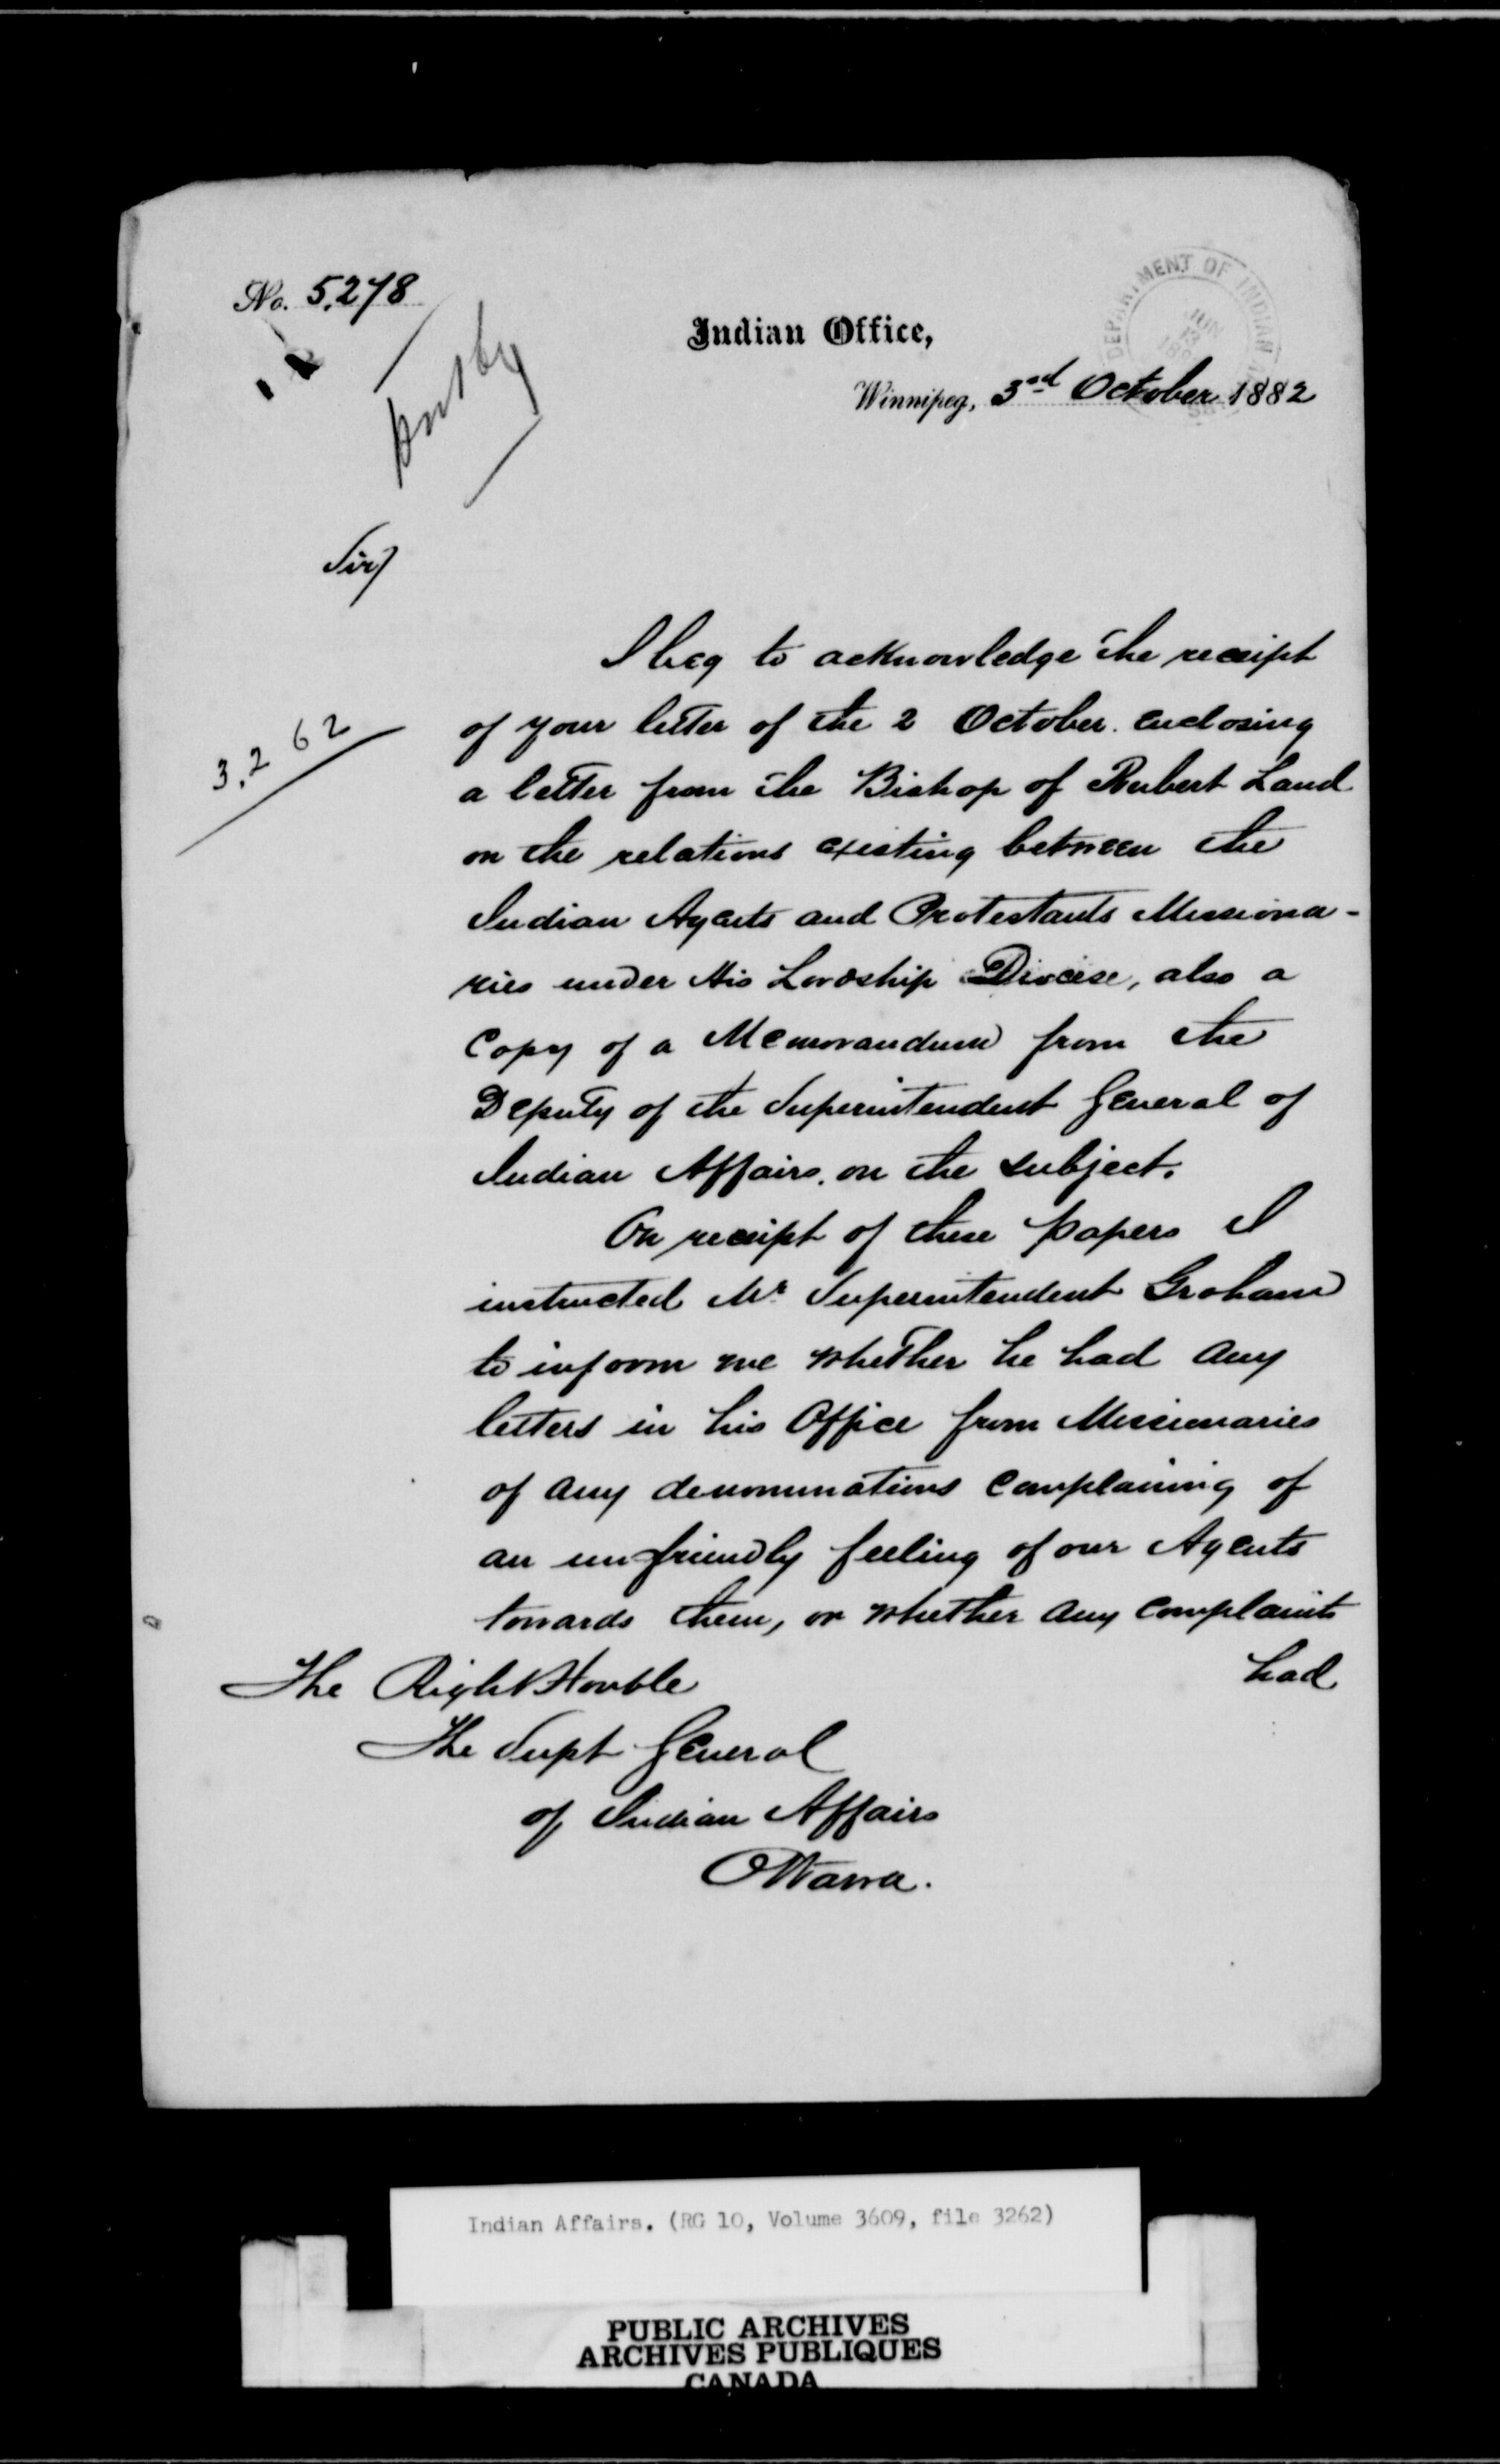 No. 5,278
DEPARTMENT OF INDIAN
JUN
13
Indian Office,
Winnipeg, 3rd October 1882
Sir,
3,262
I beg to acknowledge the receipt
of your letter of the 2 October. enclosing
a letter from the Bishop of Rubert Land
on the relations existing between the
Indian Agents and Protestants Missiona-
ries under His Lordship Diocese, also a
Copy of a Memorandum from the
Deputy of the Superintendent General of
Indian Affairs. on the subject.
On receipt of these papers I
instructed Mr. Superintendent Graham
to inform me whether he had any
letters in his Office from Missionaries
of any denominations complaining of
an unfriendly feeling of our Agents
towards them, or whether any complaints
had
The Right Honble
The Supt General
of Indian Affairs
Ottawa.
Indian Affairs. (RG 10, Volume 3609, file 3262)
PUBLIC ARCHIVES
ARCHIVES PUBLIQUES
CANADA